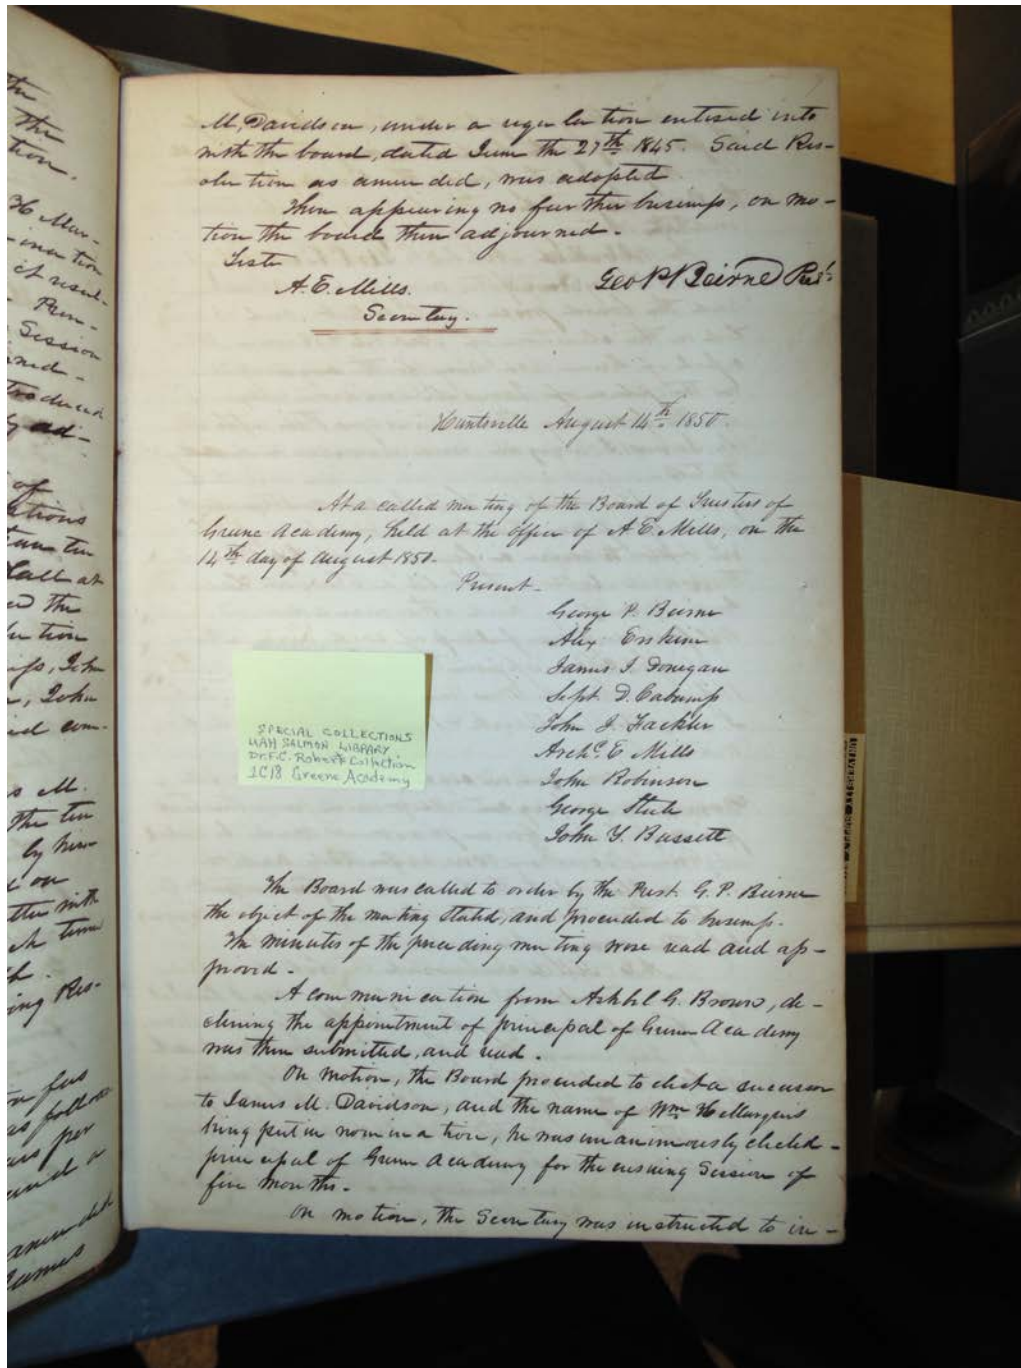 the
the
tion.
H Mar-
ination
of resul-
Session
ined-
troduced
ad-
of
Call at
ed the
lution
John
, John
id com-
s M.
the
by him
on
with
time
ing Res-
as follow
per
and a
James
M, Davidson, under a regulation entered into
with the board, dated June the 27th 1845. Said Res-
olution as amended, was adopted.
There appearing no further business, on mo-
tion the board then adjourned.
Teste
Geo P Beirne Prest
A. E. Mills.
Secretary.
Huntsville August 14th 1850.
At a called meeting of the Board of Trustees of
Greene Academy, held at the office of A E Mills, on the
14th day of August 1850.
Present-
George P. Beirne
Alex Erskine
James J. Donegan
Sept. D. Cabaniss
John J. Fackler
Archd. E Mills
John Robinson
George Steele
John Y. Bassett
SPECIAL COLLECTIONS
UAH SALMON LIBRARY
Dr. F.C. Roberts Collection
1C18 Greene Academy
The Board was called to order by the Prest. G. P. Beirne
the object of the meeting stated, and proceeded to business.
The minutes of the preceding meeting were read and ap-
proved -
A communication from Ashbel G. Brown, de-
clining the appointment of principal of Green Academy
was then submitted, and read.
On motion, the Board proceeded to elect a successor
to James M. Davidson, and the name of Wm H Marquis
being put in nomination, he was unanimously elected -
principal of Green Academy for the ensuing Session of
five months.
On motion, the Secretary was instructed to in-